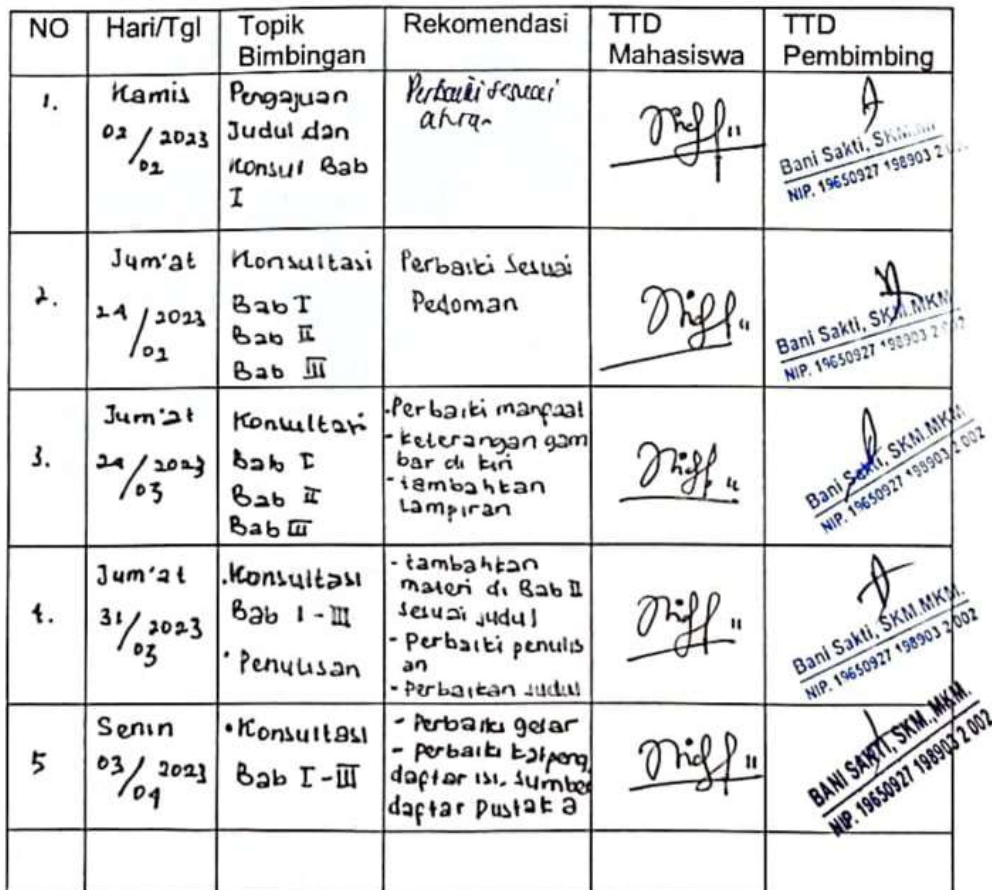 NO Hari/Tgl Topik Bimbingan Rekomendasi TTD Mahasiswa TTD Pembimbing
1. Kamis 02/02 2023
Pengajuan
Judul dan
Konsul Bab
I
Perbaiki sesuai
Bani Sakti, SKM.
NIP. 19650927 198903 2
2. Jum'at 24/02 2023
Konsultasi
Bab I
Bab II
Bab III
Perbaiki Sesuai
Pedoman
Bani Sakti, SKM.MKM
NIP. 19650927 198903 2 002
3. Jum'at 24/03 2023
Konsultasi
Bab I
Bab II
Bab III
- Perbaiki manfaat
- keterangan gam
bar di kiri
- tambahkan
Lampiran
Bani Sakti, SKM.MKM
NIP. 19650927 198903 2 002
4. Jum'at 31/03 2023
. Konsultasi
Bab I - III
· Penulisan
- tambahkan
materi di Bab II
sesuai judul
- Perbaiki penulis
an
- Perbaikan judul
Bani Sakti, SKM.MKM.
NIP. 19650927 198903 2 002
5 Senin 03/04 2023
• Konsultasi
Bab I - III
- Perbaiki gelar
- perbaiki katpeng,
daftar isi, sumber
daftar Pustaka
BANI SAKTI, SKM.,MKM.
NIP. 19650927 198903 2 002